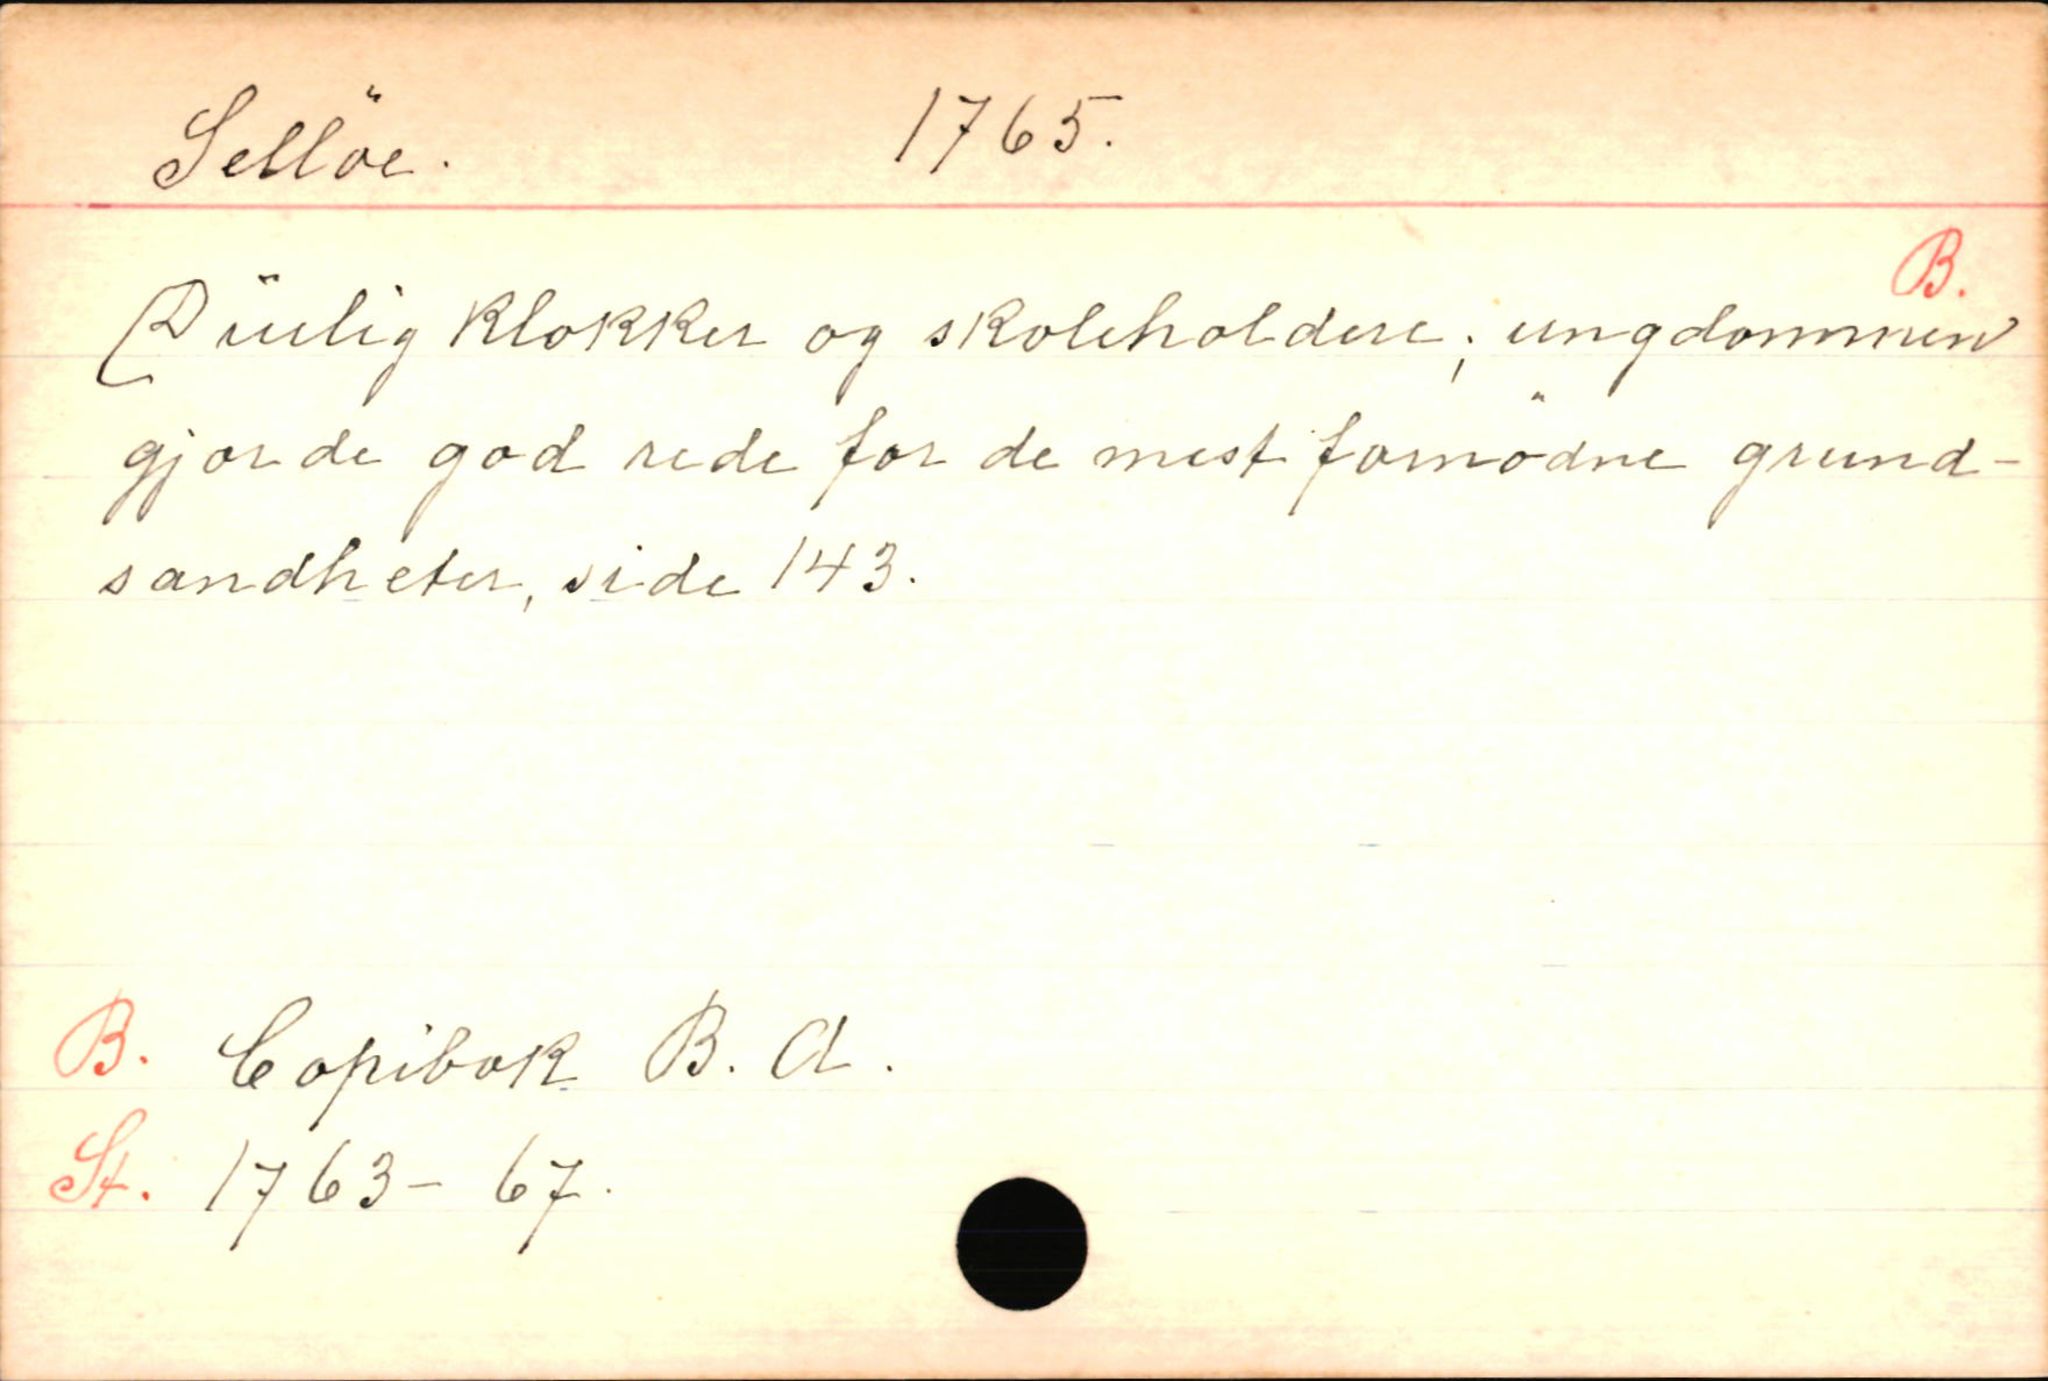 Sellöe. 1765.
B.
Duelig klokker og skoleholdere; ungdommen
gjorde god rede for de mest fornödne grund-
sandheter, side 143.
B. Copibok B. A.
St. 1763-67.